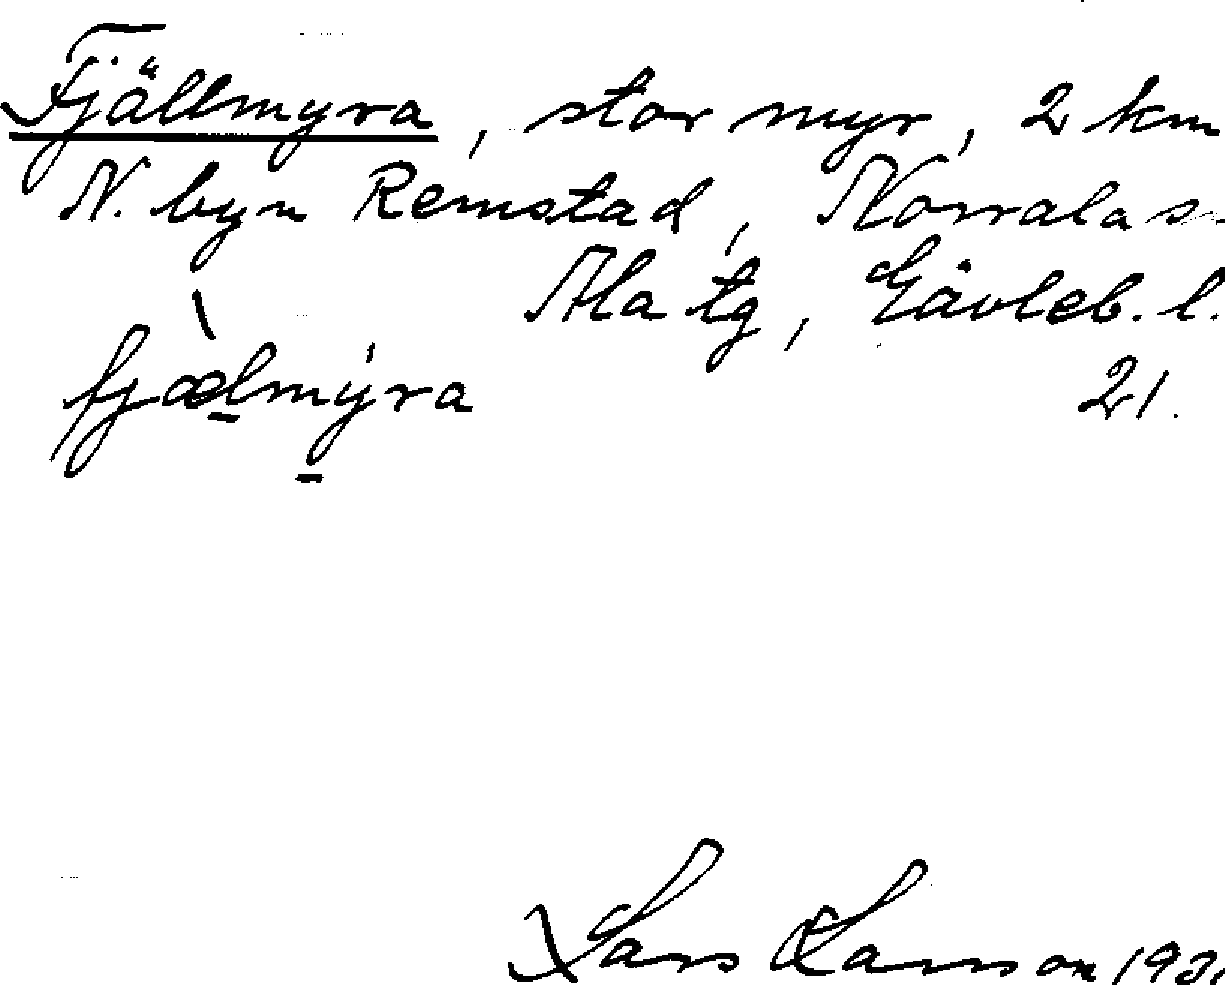 Fjällmyra, stor myr, 2 km
N. byn Remstad, Norrala s
Ala tg, Gävleb. l.
fjælmyra 21.
Lars Larsson